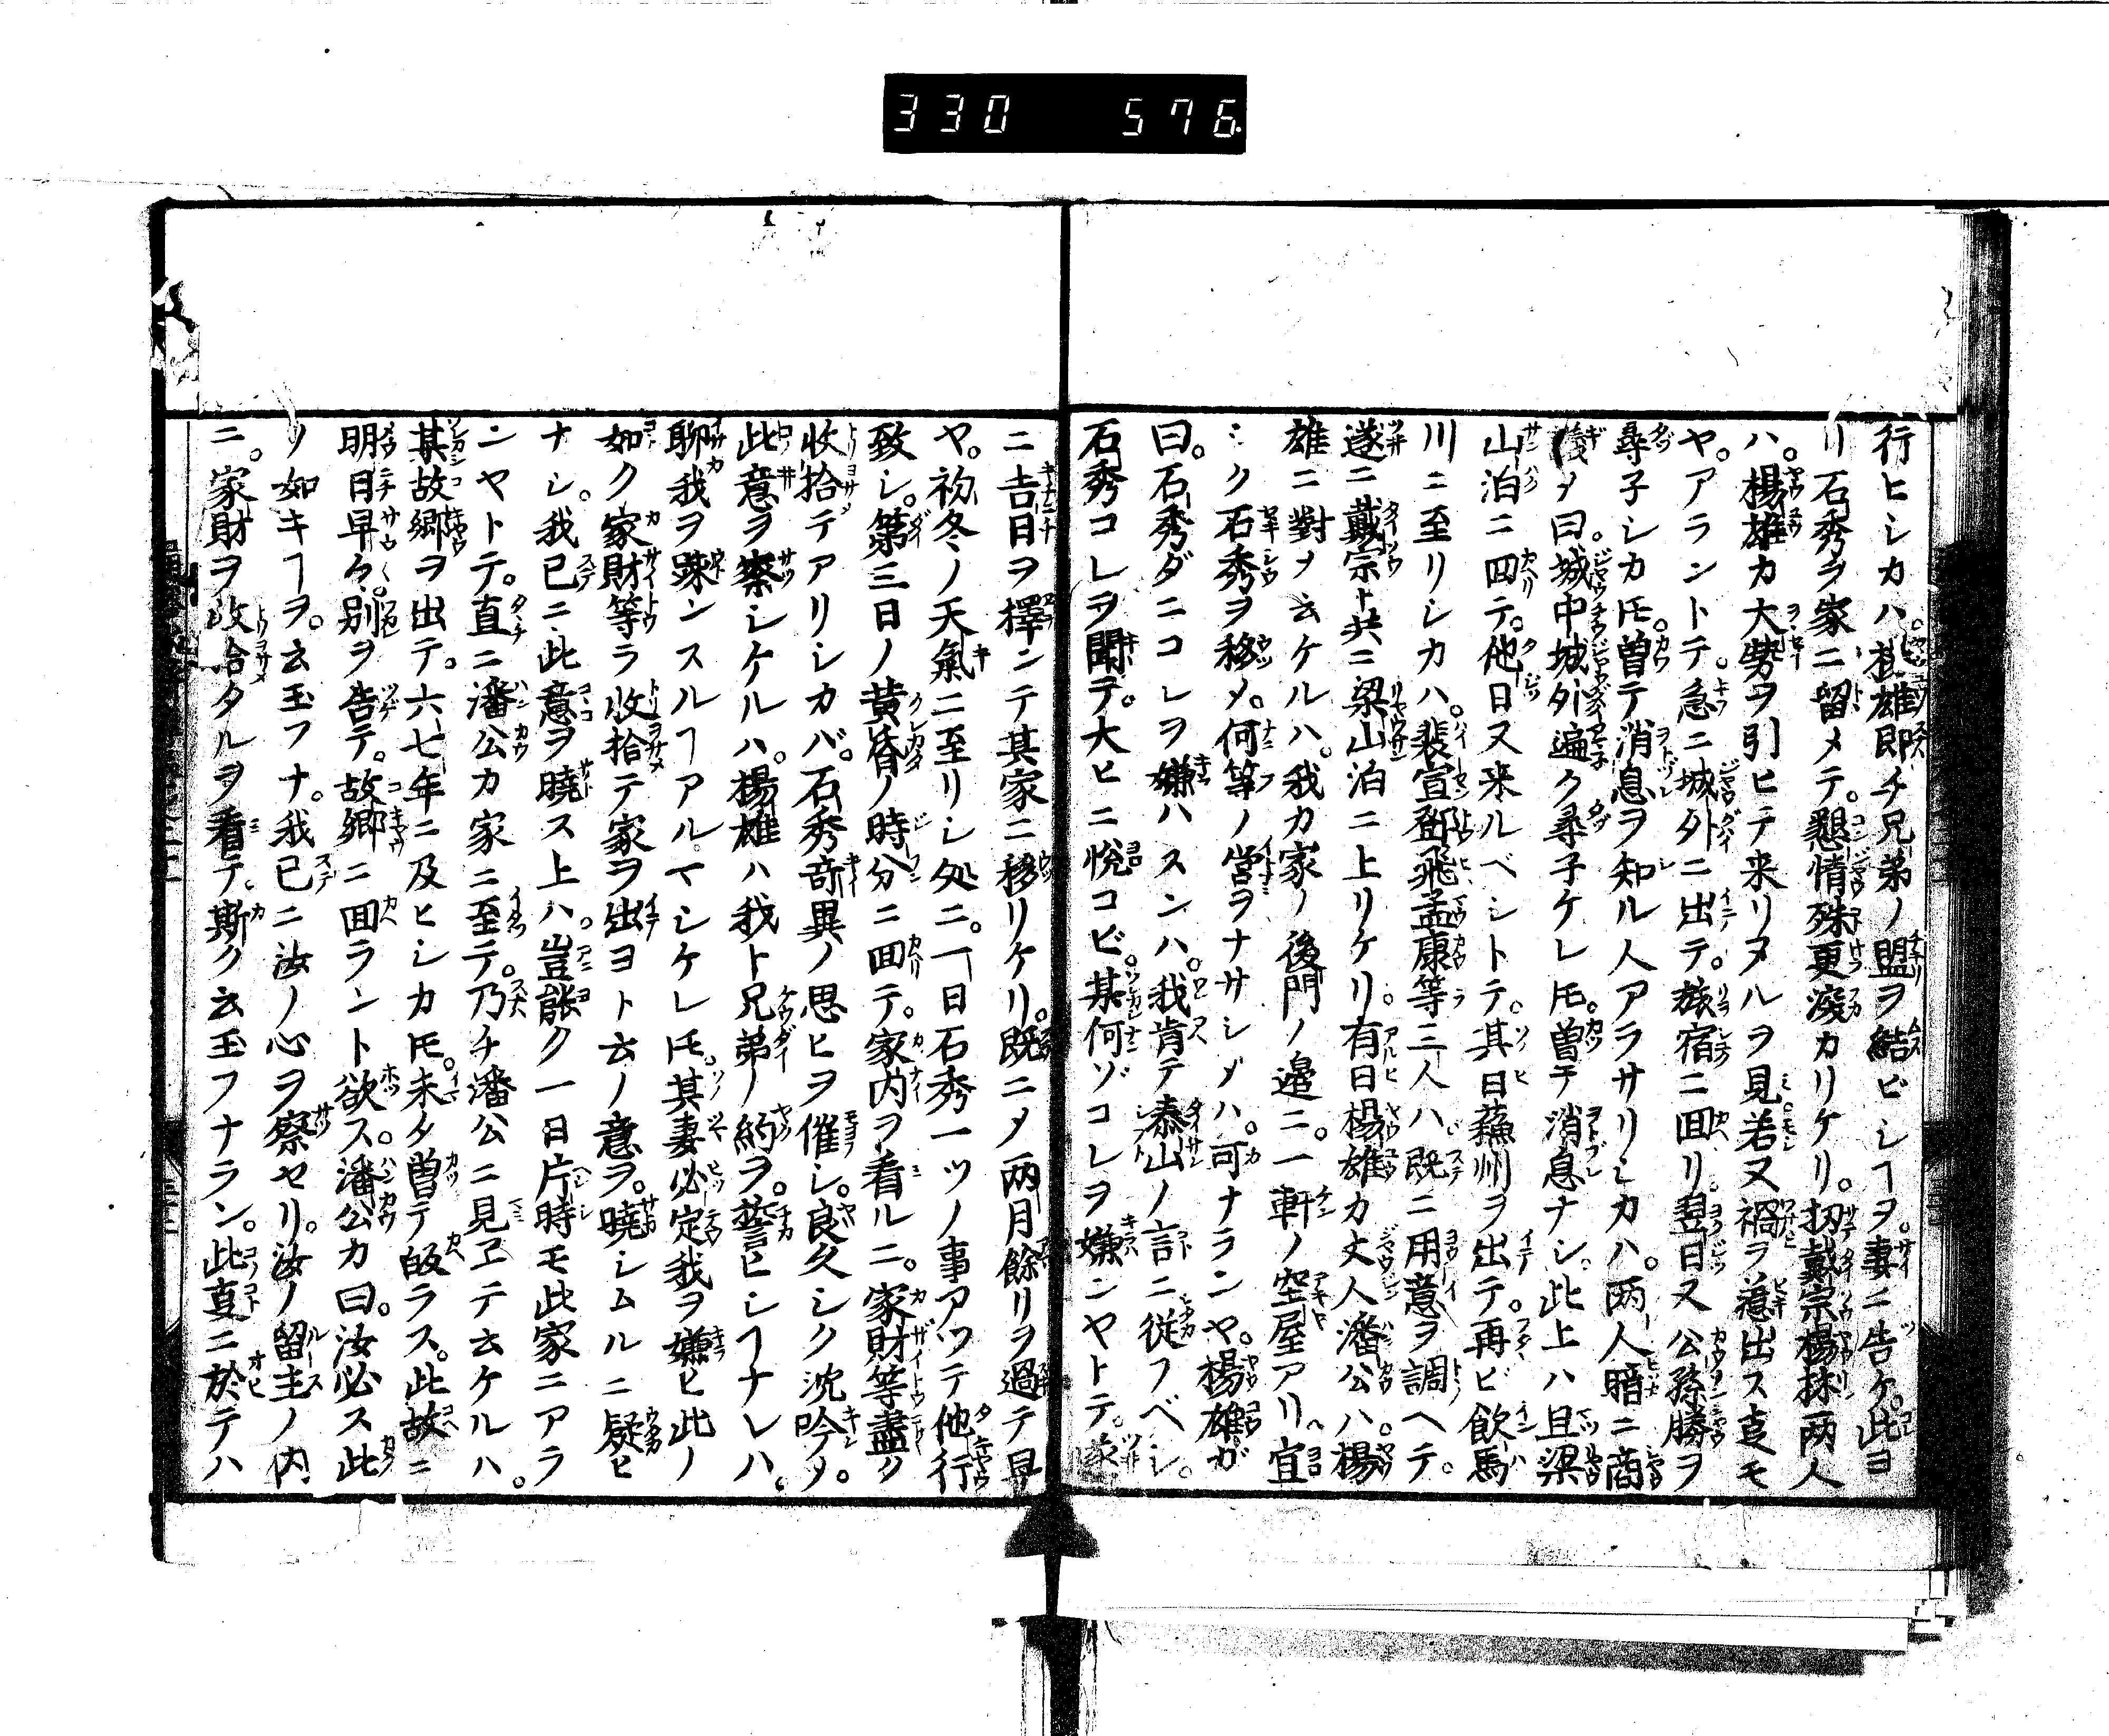 330 576
行ヒシカハ。楊雄即チ兄弟ノ盟ヲ結ビシヿヲ。妻ニ告ケ。此ヨ
リ石秀ヲ家ニ留メテ。懇情殊更深カリケリ。扨戴宗楊林両人
ハ。楊雄カ大勢ヲ引ヒテ来リヌルヲ見。若又禍ヲ惹出ス支モ
ヤ。アラントテ。急ニ城外ニ出テ。旅宿ニ回リ。翌日又公孫勝ヲ
尋子シカ𪜈。曽テ消息ヲ知ル人アラサリシカハ。両人暗ニ商
議メ曰。城中城外遍ク尋子ケレ𪜈。曽テ消息ナシ。此上ハ且梁
山泊ニ回テ。他日又来ルベシトテ。其日薊州ヲ出テ。再ビ飲馬
川ニ至リシカハ。裴宣鄧飛孟康等三人ハ。既ニ用意ヲ調ヘテ。
遂ニ戴宗ト共ニ梁山泊ニ上リケリ。有日楊雄カ丈人潘公ハ。楊
雄ニ對メ云ケルハ。我カ家ノ後門ノ邉ニ。一軒ノ空屋アリ。宜
シク石秀ヲ移メ。何等ノ営ヲナサシメハ。可ナランヤ。楊雄ガ
曰。石秀ダニコレヲ嫌ハスンハ。我肯テ泰山ノ言ニ従フベシ。
石秀コレヲ聞テ。大ヒニ悦コビ。某何ゾコレヲ嫌ンヤトテ。遂
ニ吉日ヲ擇ンテ其家ニ移リケリ。既ニメ両月餘リヲ過テ早
ヤ。初冬ノ天氣ニ至リシ処ニ。一日石秀一ツノ事アツテ他行
致シ。第三日ノ黄昏ノ時分ニ回テ。家内ヲ看ルニ。家財等盡ク
收拾テアリシカバ。石秀竒異ノ思ヒヲ催シ。良久シク沈吟メ。
此意ヲ察シケルハ。楊雄ハ我ト兄弟ノ約ヲ。誓ヒシヿナレハ。
聊我ヲ踈ンスルヿアルマシケレ𪜈。其妻必定我ヲ嫌ヒ此ノ
如ク家財等ヲ收拾テ家ヲ出ヨト云ノ意ヲ。曉シムルニ疑ヒ
ナシ。我已ニ此意ヲ曉ス上ハ。豈能ク一日片時モ此家ニアラ
ンヤトテ。直ニ潘公カ家ニ至テ。乃チ潘公ニ見ヱテ云ケルハ。
某故郷ヲ出テ。六七年ニ及ヒシカ𪜈。未タ曽テ皈ラス。此故ニ
明日早々。別ヲ告テ。故郷ニ回ラント欲ス。潘公カ曰。汝必ス此
ノ如キヿヲ。云玉フナ。我已ニ汝ノ心ヲ察セリ。汝ノ留主ノ内
ニ。家財ヲ收拾タルヲ看テ。斯ク云玉フナラン。此支ニ於テハ